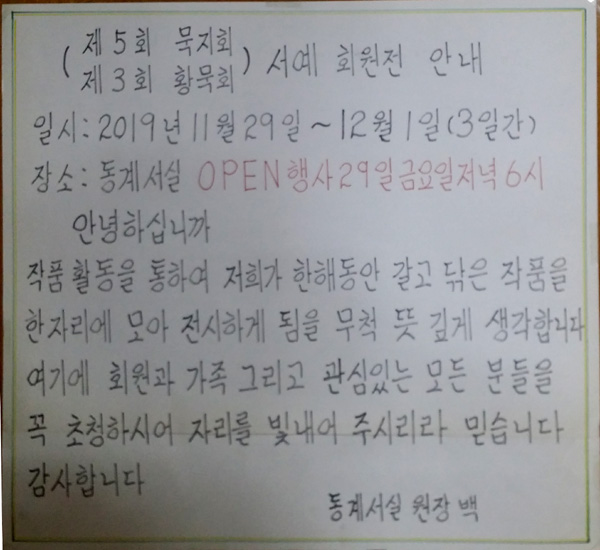 (제5회 묵지회
제3회 황묵회) 서예 회원전 안내
일시: 2019년 11월 29일 ~ 12월 1일(3일간)
장소: 동계서실 OPEN행사29일금요일저녁6시
안녕하십니까
작품활동을 통하여 저희가 한해동안 갈고 닦은 작품을
한자리에 모아 전시하게 됨을 무척 뜻 깊게 생각합니다
여기에 회원과 가족 그리고 관심있는 모든 분들을
꼭 초청하시어 자리를 빛내어 주시리라 믿습니다
감사합니다
동계서실 원장 백